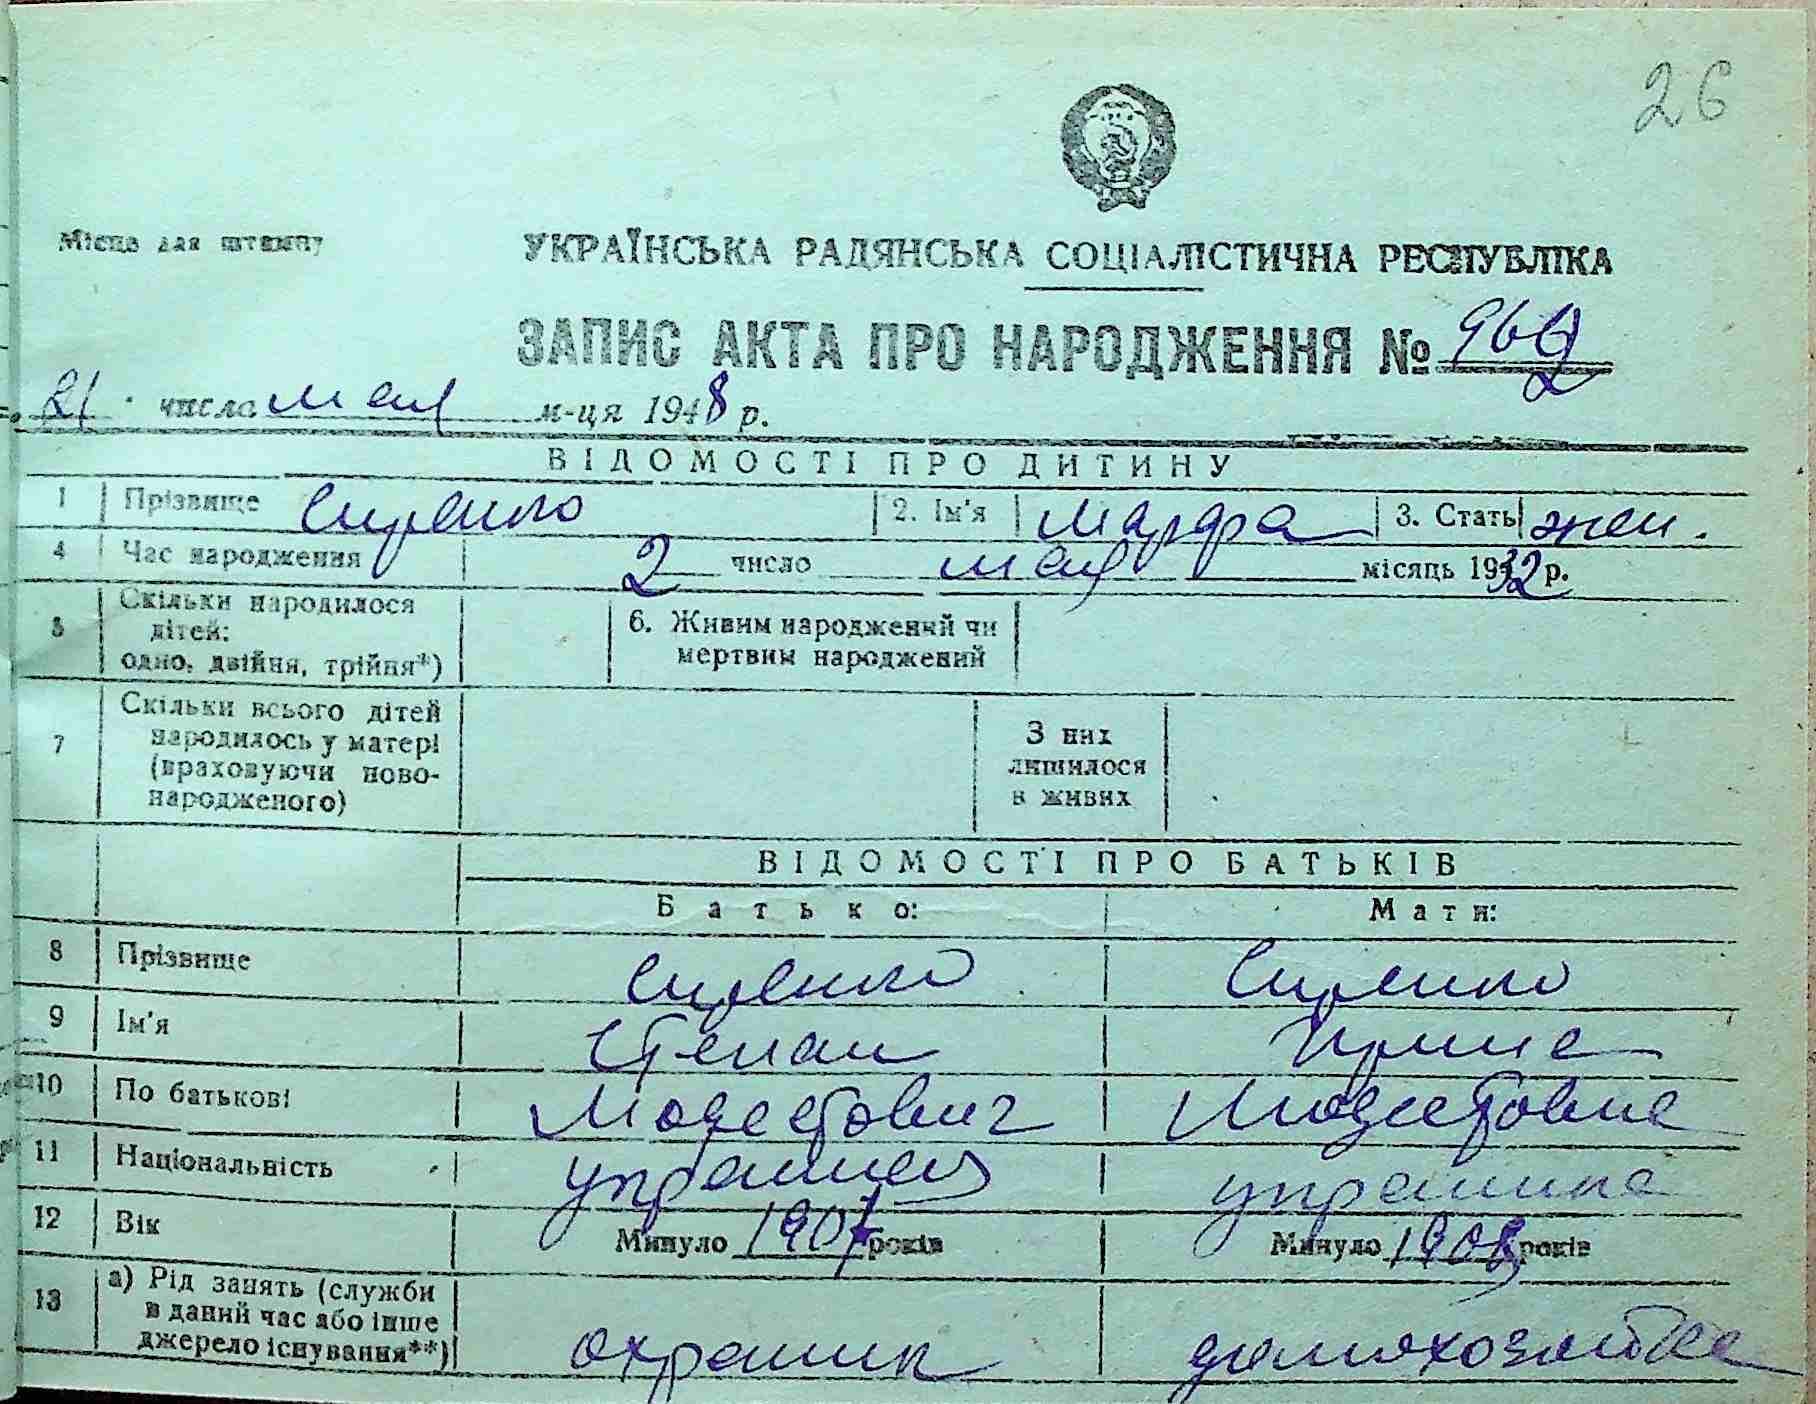 26
Місце для штампу
УКРАЇНСЬКА РАДЯНСЬКА СОЦІАЛІСТИЧНА РЕСПУБЛІКА
ЗАПИС АКТА ПРО НАРОДЖЕННЯ № 962
21 числа мая м-ця 1948 р.
ВІДОМОСТІ ПРО ДИТИНУ
1 Прізвище Сиренко 2. Ім'я Марфа 3. Стать жен.
4 Час народження 2 число мая місяць 1932 р.
5 Скільки народилося
дітей:
одно, двійня, трійня*)
6. Живим народжений чи
мертвим народжений
7 Скільки всього дітей
народилось у матері
(враховуючи ново-
народженого)
З них
лишилося
в живих
ВІДОМОСТІ ПРО БАТЬКІВ
Батько: Мати:
8 Прізвище Сиренко Сиренко
9 Ім'я Степан Ирина
10 По батькові Модестович Модестовна
11 Національність украинец украинка
12 Вік Минуло 1907 років Минуло 1908 років
13 а) Рід занять (служби
в даний час або інше
джерело існування**) охраник домохозяйка